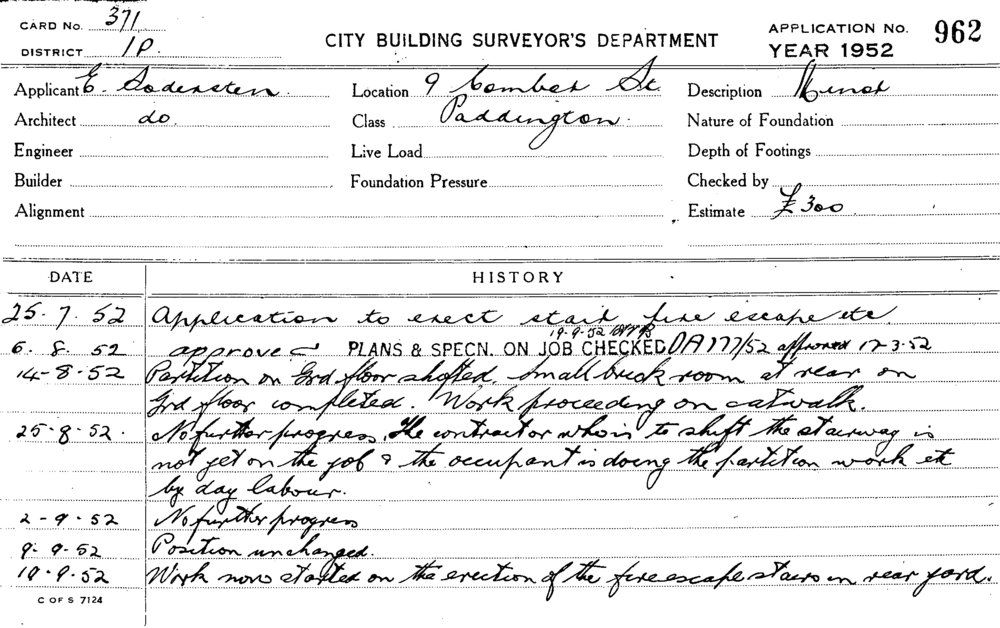 CARD No. 371
DISTRICT 1P.
CITY BUILDING SURVEYOR'S DEPARTMENT
APPLICATION No. 962
YEAR 1952
Applicant E. Sodersten Location 9 Comber St. Description Minor
Architect do. Class Paddington. Nature of Foundation
Engineer Live Load Depth of Footings
Builder Foundation Pressure Checked by
Alignment Estimate £300
DATE HISTORY
25.7.52 Application to erect stair fire escape etc.
19.9.52
6.8.52 approved PLANS & SPECN. ON JOB CHECKED DA 177/52 approved 12-3-52
14-8-52 Partition on Grd floor shifted. Small brick room at rear on
Grd floor completed. Work proceeding on catwalk.
25-8-52. No further progress. The contractor who is to shift the stairway is
not yet on the job & the occupant is doing the partition work etc
by day labour.
2-9-52 No further progress
9-9-52 Position unchanged.
19-9.52 Work now started on the erection of the fire escape stairs in rear yard.
C OF S 7124